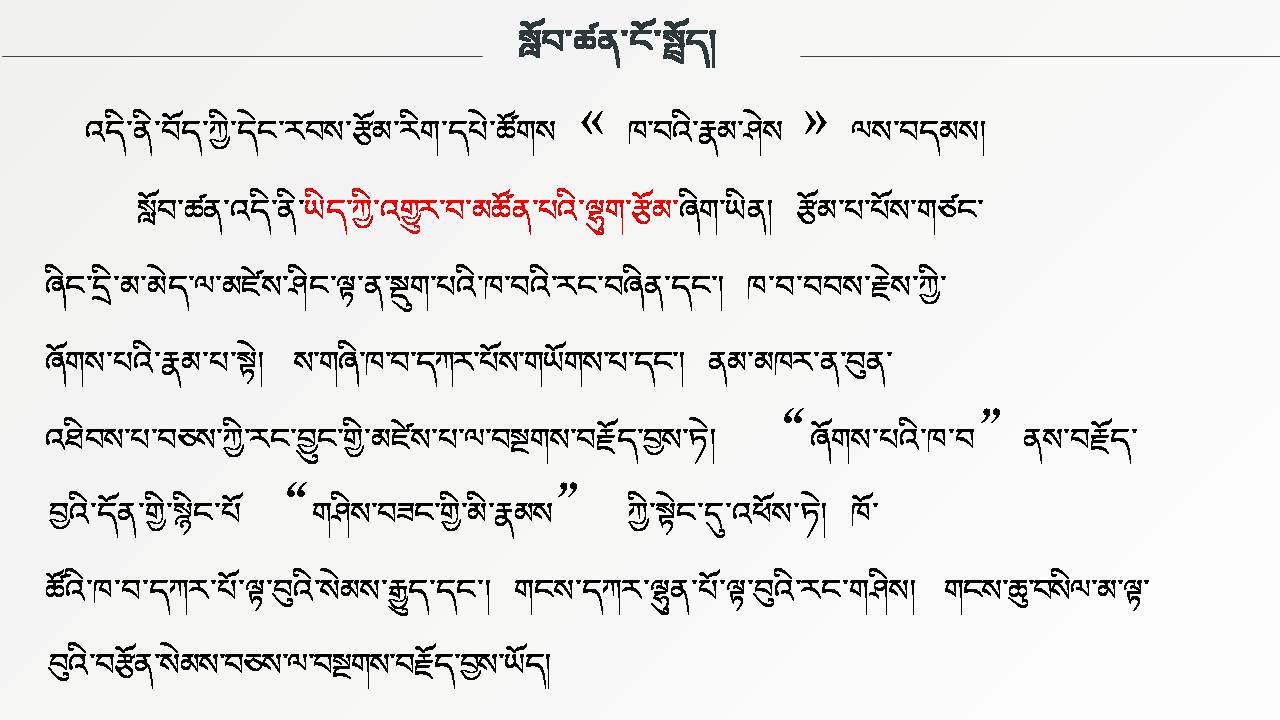 སློབ་ཚན་ངོ་སྤྲོད།
འདི་ནི་བོད་ཀྱི་དེང་རབས་རྩོམ་རིག་དཔེ་ཚོགས « ཁ་བའི་རྣམ་ཤེས » ལས་བདམས།
སློབ་ཚན་འདི་ནི་ཡིད་ཀྱི་འགྱུར་བ་མཚོན་པའི་ལྷུག་རྩོམ་ཞིག་ཡིན། རྩོམ་པ་པོས་གཙང་
ཞིང་དྲི་མ་མེད་ལ་མཛེས་ཤིང་ལྟ་ན་སྡུག་པའི་ཁ་བའི་རང་བཞིན་དང་། ཁ་བ་བབས་རྗེས་ཀྱི་
ཞོགས་པའི་རྣམ་པ་སྟེ། ས་གཞི་ཁ་བ་དཀར་པོས་གཡོགས་པ་དང་། ནམ་མཁར་ན་བུན་
འཐིབས་པ་བཅས་ཀྱི་རང་བྱུང་གྱི་མཛེས་པ་ལ་བསྔགས་བརྗོད་བྱས་ཏེ། “ཞོགས་པའི་ཁ་བ” ནས་བརྗོད་
བྱའི་དོན་གྱི་སྙིང་པོ “གཤིས་བཟང་གྱི་མི་རྣམས” ཀྱི་སྟེང་དུ་འཕོས་ཏེ། ཁོ་
ཚོའི་ཁ་བ་དཀར་པོ་ལྟ་བུའི་སེམས་རྒྱུད་དང་། གངས་དཀར་ལྷུན་པོ་ལྟ་བུའི་རང་གཤིས། གངས་ཆུ་བསིལ་མ་ལྟ་
བུའི་བརྩོན་སེམས་བཅས་ལ་བསྔགས་བརྗོད་བྱས་ཡོད།